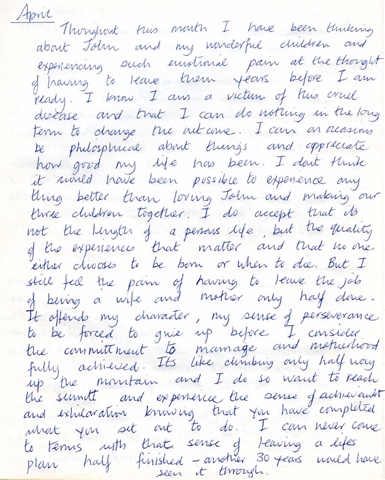 April
Thoughout this month I have been thinking
about John and my wonderful children and
experiencing such emotional pain at the thought
of having to leave them years before I am
ready. I know I am a victim of this cruel
disease and that I can do nothing in the long
term to change the outcome. I can on reasons
be philosphical about things and appreciate
how good my life has been. I dont think
it would have been possible to experience any
thing better than loving John and making our
three children together. I do accept that its
not the length of a persons life, but the quality
of the experiences that matter and that no one
either chooses to be born or when to die. But I
still feel the pain of having to leave the job
of being a wife and mother only half done.
It offends my character, my sense of perseverance
to be forced to give up before I consider
the committment to marriage and motherhood
fully achieved. It's like climbing only half way
up the mountain and I do so want to reach
the summit and experience the sense of achievement
and exhilaration knowing that you have completed
what you set out to do. I can never come
to terms with that sense of leaving a lifes
plan half finished - another 30 years would have
seen it through.